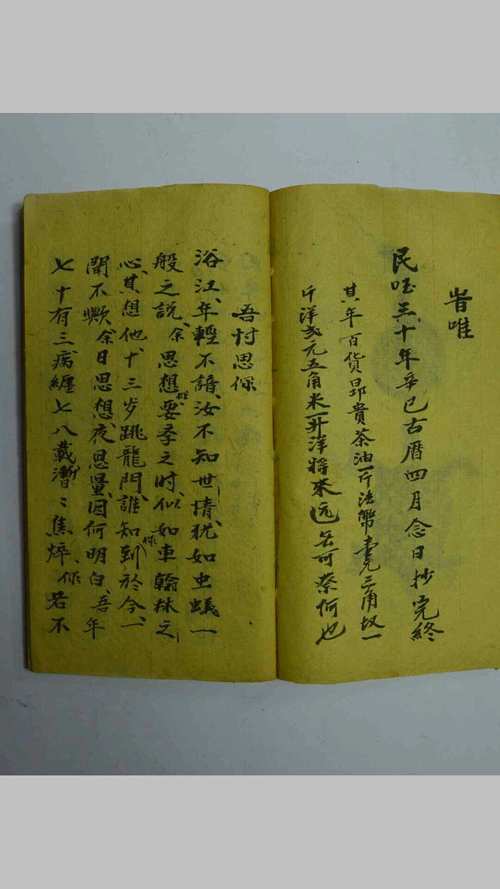 昔唯
民国三十年辛巳古曆四月念日抄完終
其年百貨昂貴茶油一斤法幣壹元三角 一
斤洋弍元五角米一升洋 来远 可奈何也
吾忖思你
浴江年輕不諳汝不知世情犹如虫蟻一
般之説余思想你要季之時似如車翰林之
心其想他十三步跳龍門誰知到你於今一
闹不欺余日思想夜思量因何明白吾年
七十有三病纏七八載漸漸焦焠你若不